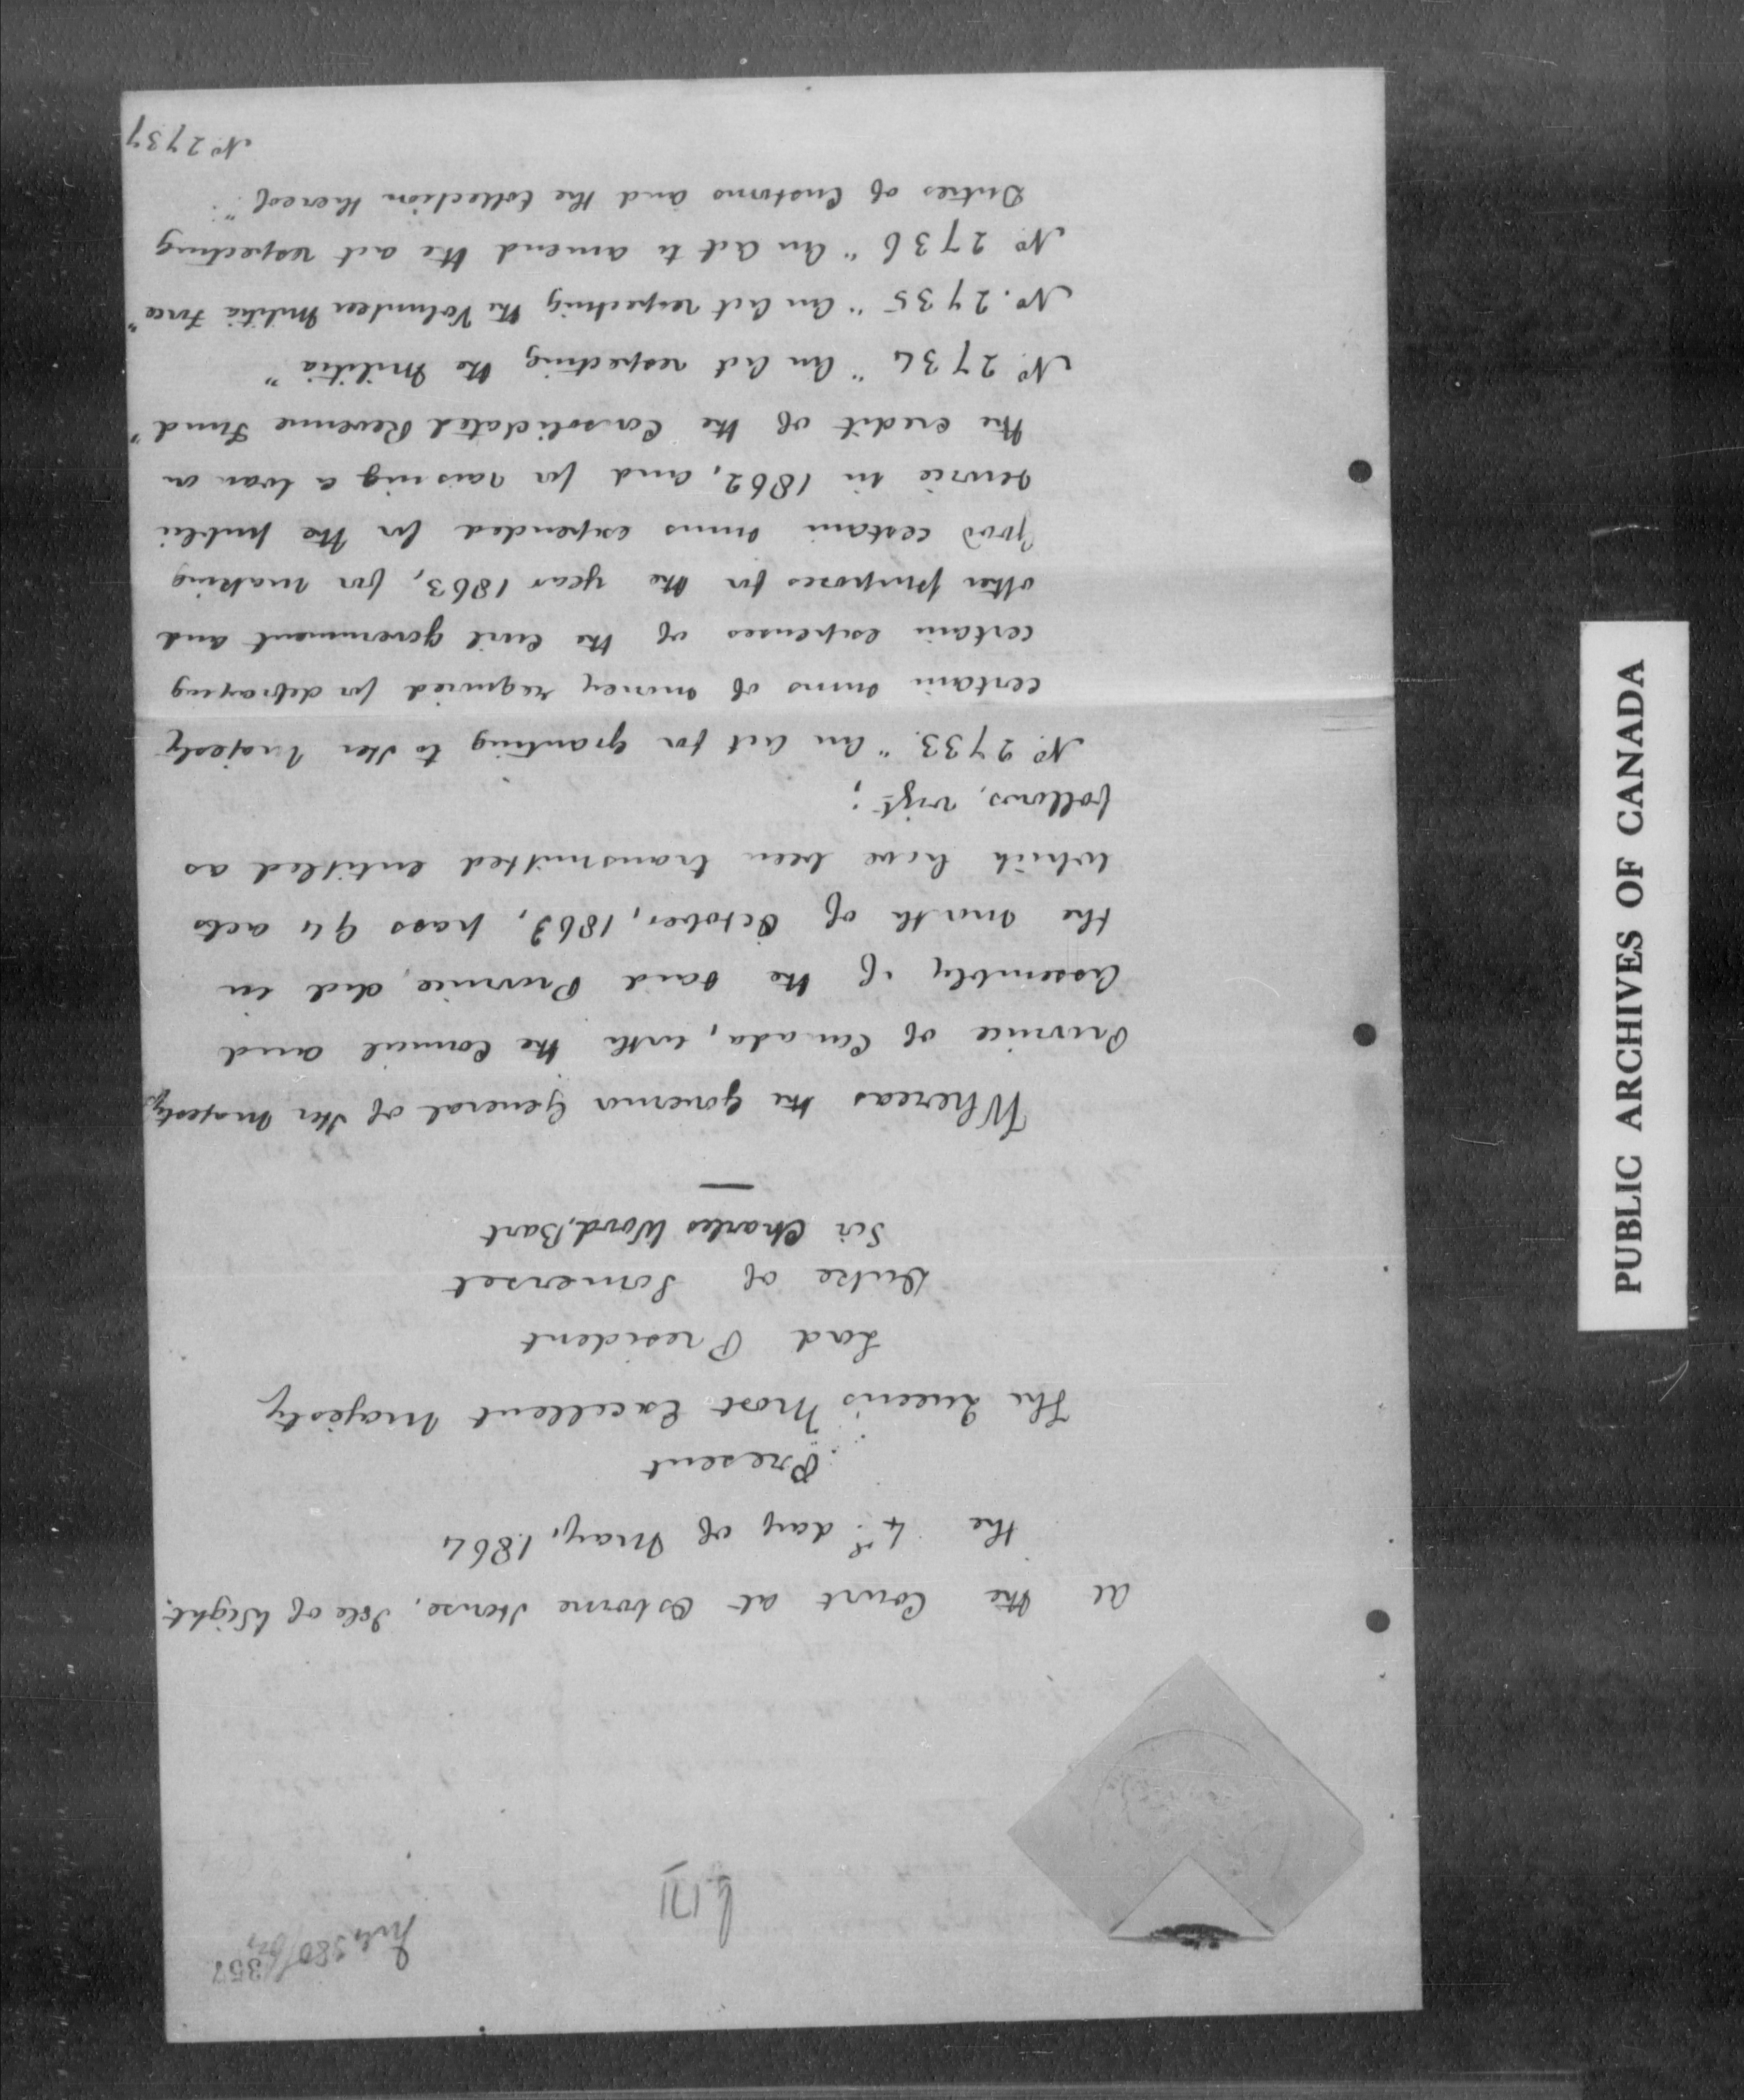 357
At the Court at Osborne House, Isle of Wight.
the 4th day of May, 1864
Present
The Queen's Most Excellent Majesty
Lord President
Duke of Somerset
Sir Charles Wood, Bart
Whereas the Governor General of Her Majesty's
Province of Canada, with the Council and
Assembly of the said Province, did in
the month of October, 1863, pass 94 acts
which have been transmitted entitled as
follows, vizt:
No. 2733. "An Act for granting to Her Majesty
certain sums of money required for defraying
certain expenses of the Civil government and
other purposes for the year 1863, for making
good certain sums expended for the public
service in 1862, and for raising a loan on
the credit of the Consolidated Revenue Fund"
No. 2734 "An Act respecting the Militia"
No. 2735 "An Act respecting the Volunteer Militia Force"
No. 2736 "An Act to amend the act respecting
Duties of Customs and the Collection thereof":
No. 2737
PUBLIC ARCHIVES OF CANADA